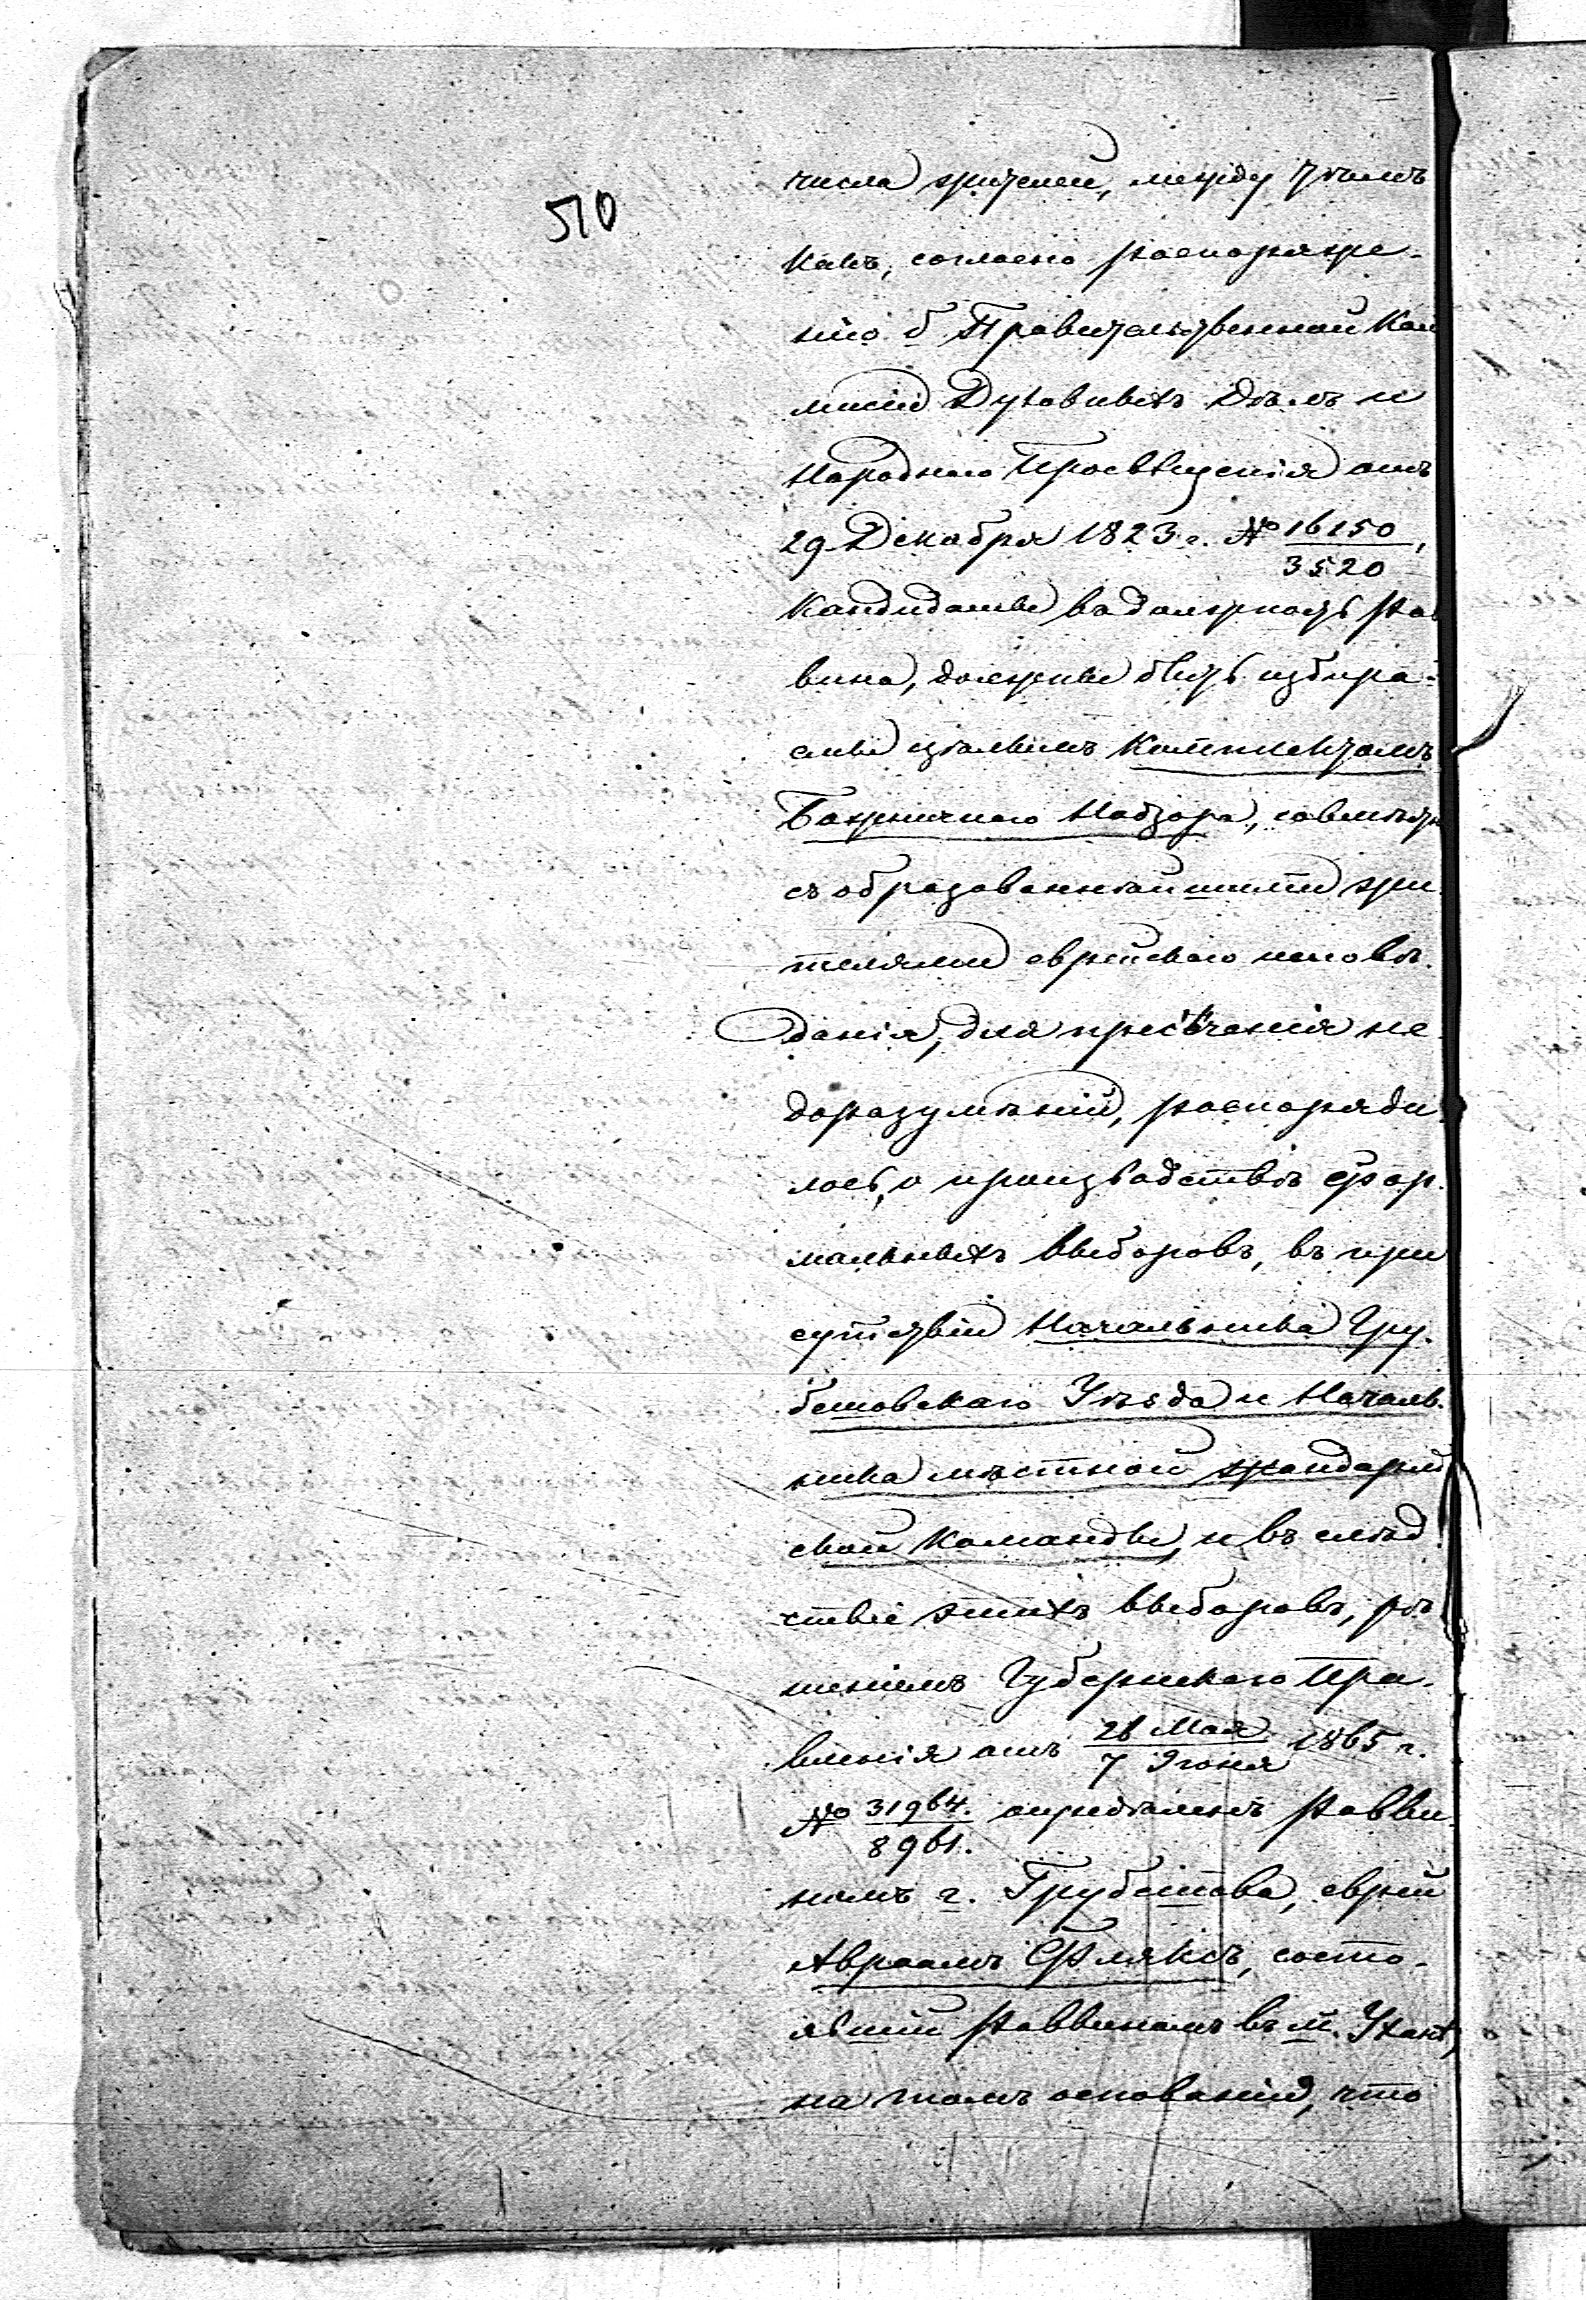 510
числа жителей, между тѣмъ
какъ, согласно распоряже-
нію б. Правительственной Ком
мисіи Духовныхъ Дѣлъ и
Народнаго Просвѣщенія отъ
29 Декабря 1823 г. № 16150/3520,
Кандидаты въ должность Рав
вина, должны быть избира-
емы цѣлымъ Комплектомъ
Божничнаго Надзора, совмѣстн
съ образованнѣйшими жи
телями еврейскаго исповѣ-
данія, для пресѣченія не
доразумѣній, распоряди
лось о производствѣ фор-
мальныхъ выборовъ, въ при
сутствіи Начальника Гру-
бешовскаго Уѣзда и Началь-
ника мѣстной жандарм
ской команды, и въ слѣд
ствіе этихъ выборовъ, рѣ
шеніемъ Губернскаго Пра-
вленія отъ 26 Мая/7 Іюня 1865 г.
№ 31964./8961. опредѣленъ Равви-
номъ г. Грубешова, еврей
Авраамъ Фляксъ, состо-
явшій Раввиномъ въ м. Ухан,
на томъ основаніи, что